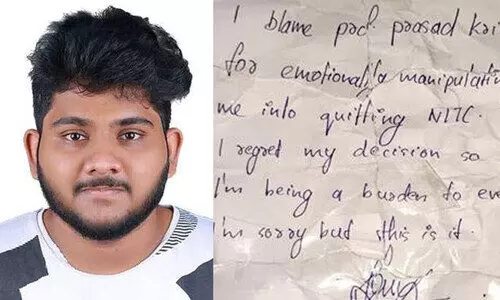 I blame prof. prasad Kri
for emotionally manipulatin
me into quitting NITC.
I regret my decision so
I'm being a burden to eve
I'm sorry but this is it.